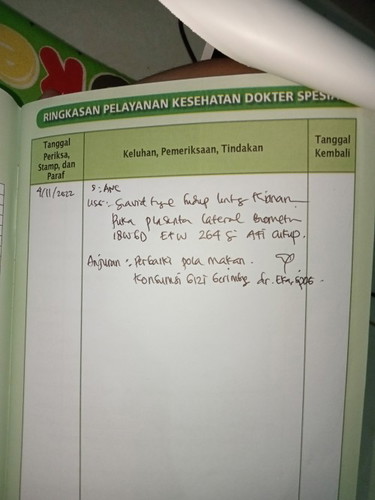 RINGKASAN PELAYANAN KESEHATAN DOKTER SPESIA
Tanggal Periksa, Stamp, dan Paraf
Keluhan, Pemeriksaan, Tindakan
Tanggal Kembali
4/11/2022
S : ANC
USG : Gravid tgl hidup
plasenta lateral
18W6D EFW 264 gr AFI cukup.
Anjuran : Perbaiki pola makan.
Konsumsi Gizi Seimbang dr. Eka, SpOG.